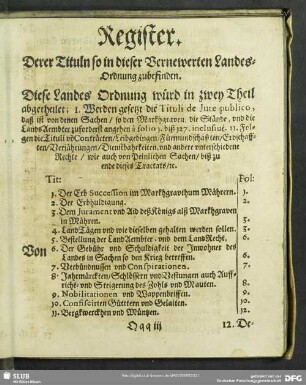 Register.
Derer Tituln so in dieser Vernewerten Landes-
Ordnung zubefinden.
Diese Landes Ordnung würd in zwey Theil
abgetheilet: 1. Werden gesetzt die Tituli de Jure publico,
daß ist von denen Sachen / so den Marckgraven, die Stände, und die
Lands Aembter zuforderst angehen à folio 1. biß 127. inclusivè. 11. Fol-
gen die Tituli
ten / Verjährungen / Dienstbahrkeiten, und andere unterschiedene
Rechte / wie auch von Peinlichen Sachen / biß zu
ende dieses Tractats / etc.
Tit: Fol:
Von
1. Der Erb Succession im Marckgrawthumb Mähren. 1.
2. Der Erbhuldigung. 2.
3. Dem Jurament und Aid deß Königs alß Marckgraven
in Mähren. 3.
4. Land Tägen und wie dieselben gehalten werden sollen. 3.
5. Bestellung der Land Aembter, und dem Land Recht. 6.
6. Der Gebühr und Schuldigkeit der Inwohner des
Landes in Sachen so den Krieg betreffen. 6.
7. Verbündnussen und Conspirationen. 7.
8. Jahrmärckten / Schlössern und Vestungen auch Auff-
richt- und Steigerung des Zohls und Mauten. 8.
9. Nobilitationen und Wappenbriffen.
10. Confiscirten Güttern und Gelaiten.
11. Bergkwerckhen und Müntzen. 12.
Qqq iij 12. De-
SLUB
DFG